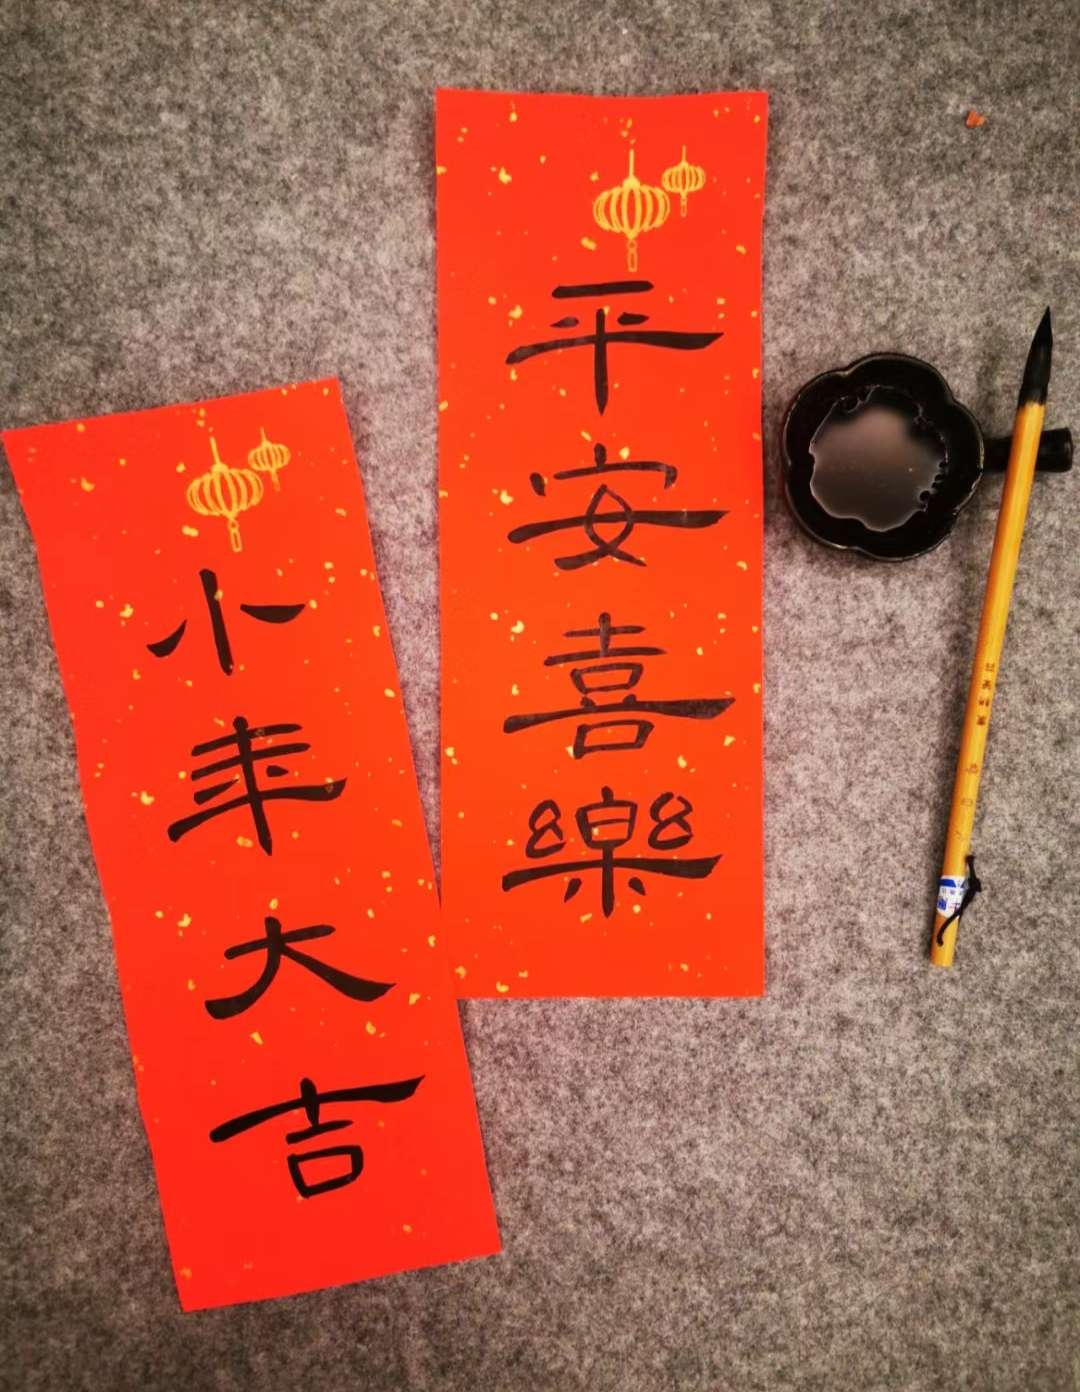 平安喜樂
小年大吉